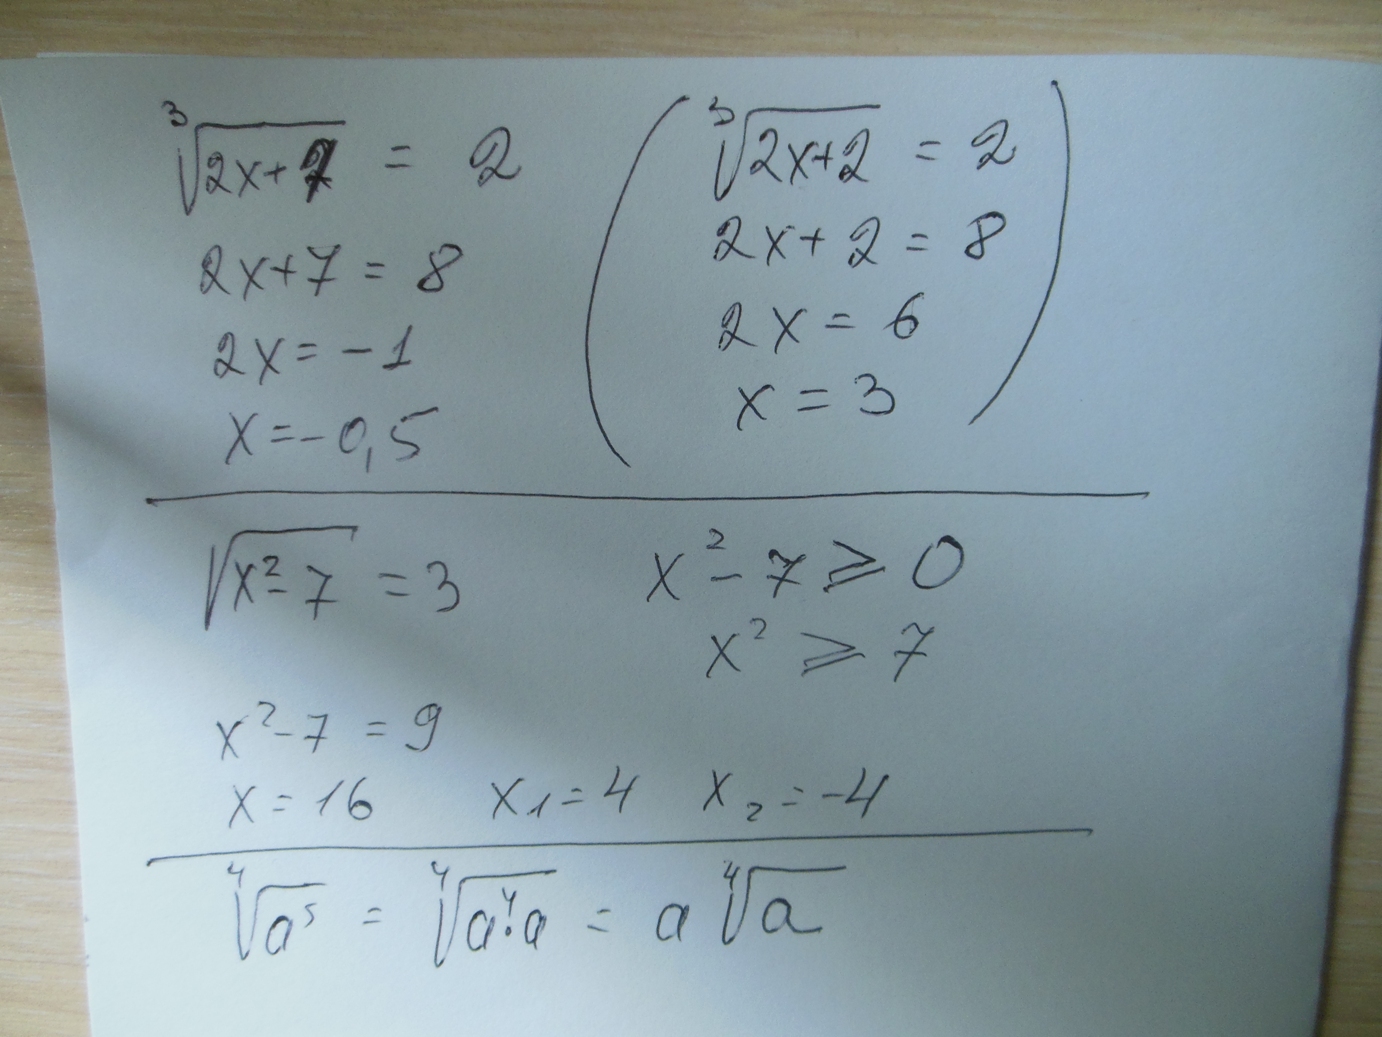 ∛(2x+7) = 2
2x+7 = 8
2x = -1
x = -0,5
(∛(2x+2) = 2
2x+2 = 8
2x = 6
x = 3)
√(x²-7) = 3
x²-7 ≥ 0
x² ≥ 7
x²-7 = 9
x = 16 x₁ = 4 x₂ = -4
∜(a⁵) = ∜(a⁴·a) = a ∜a